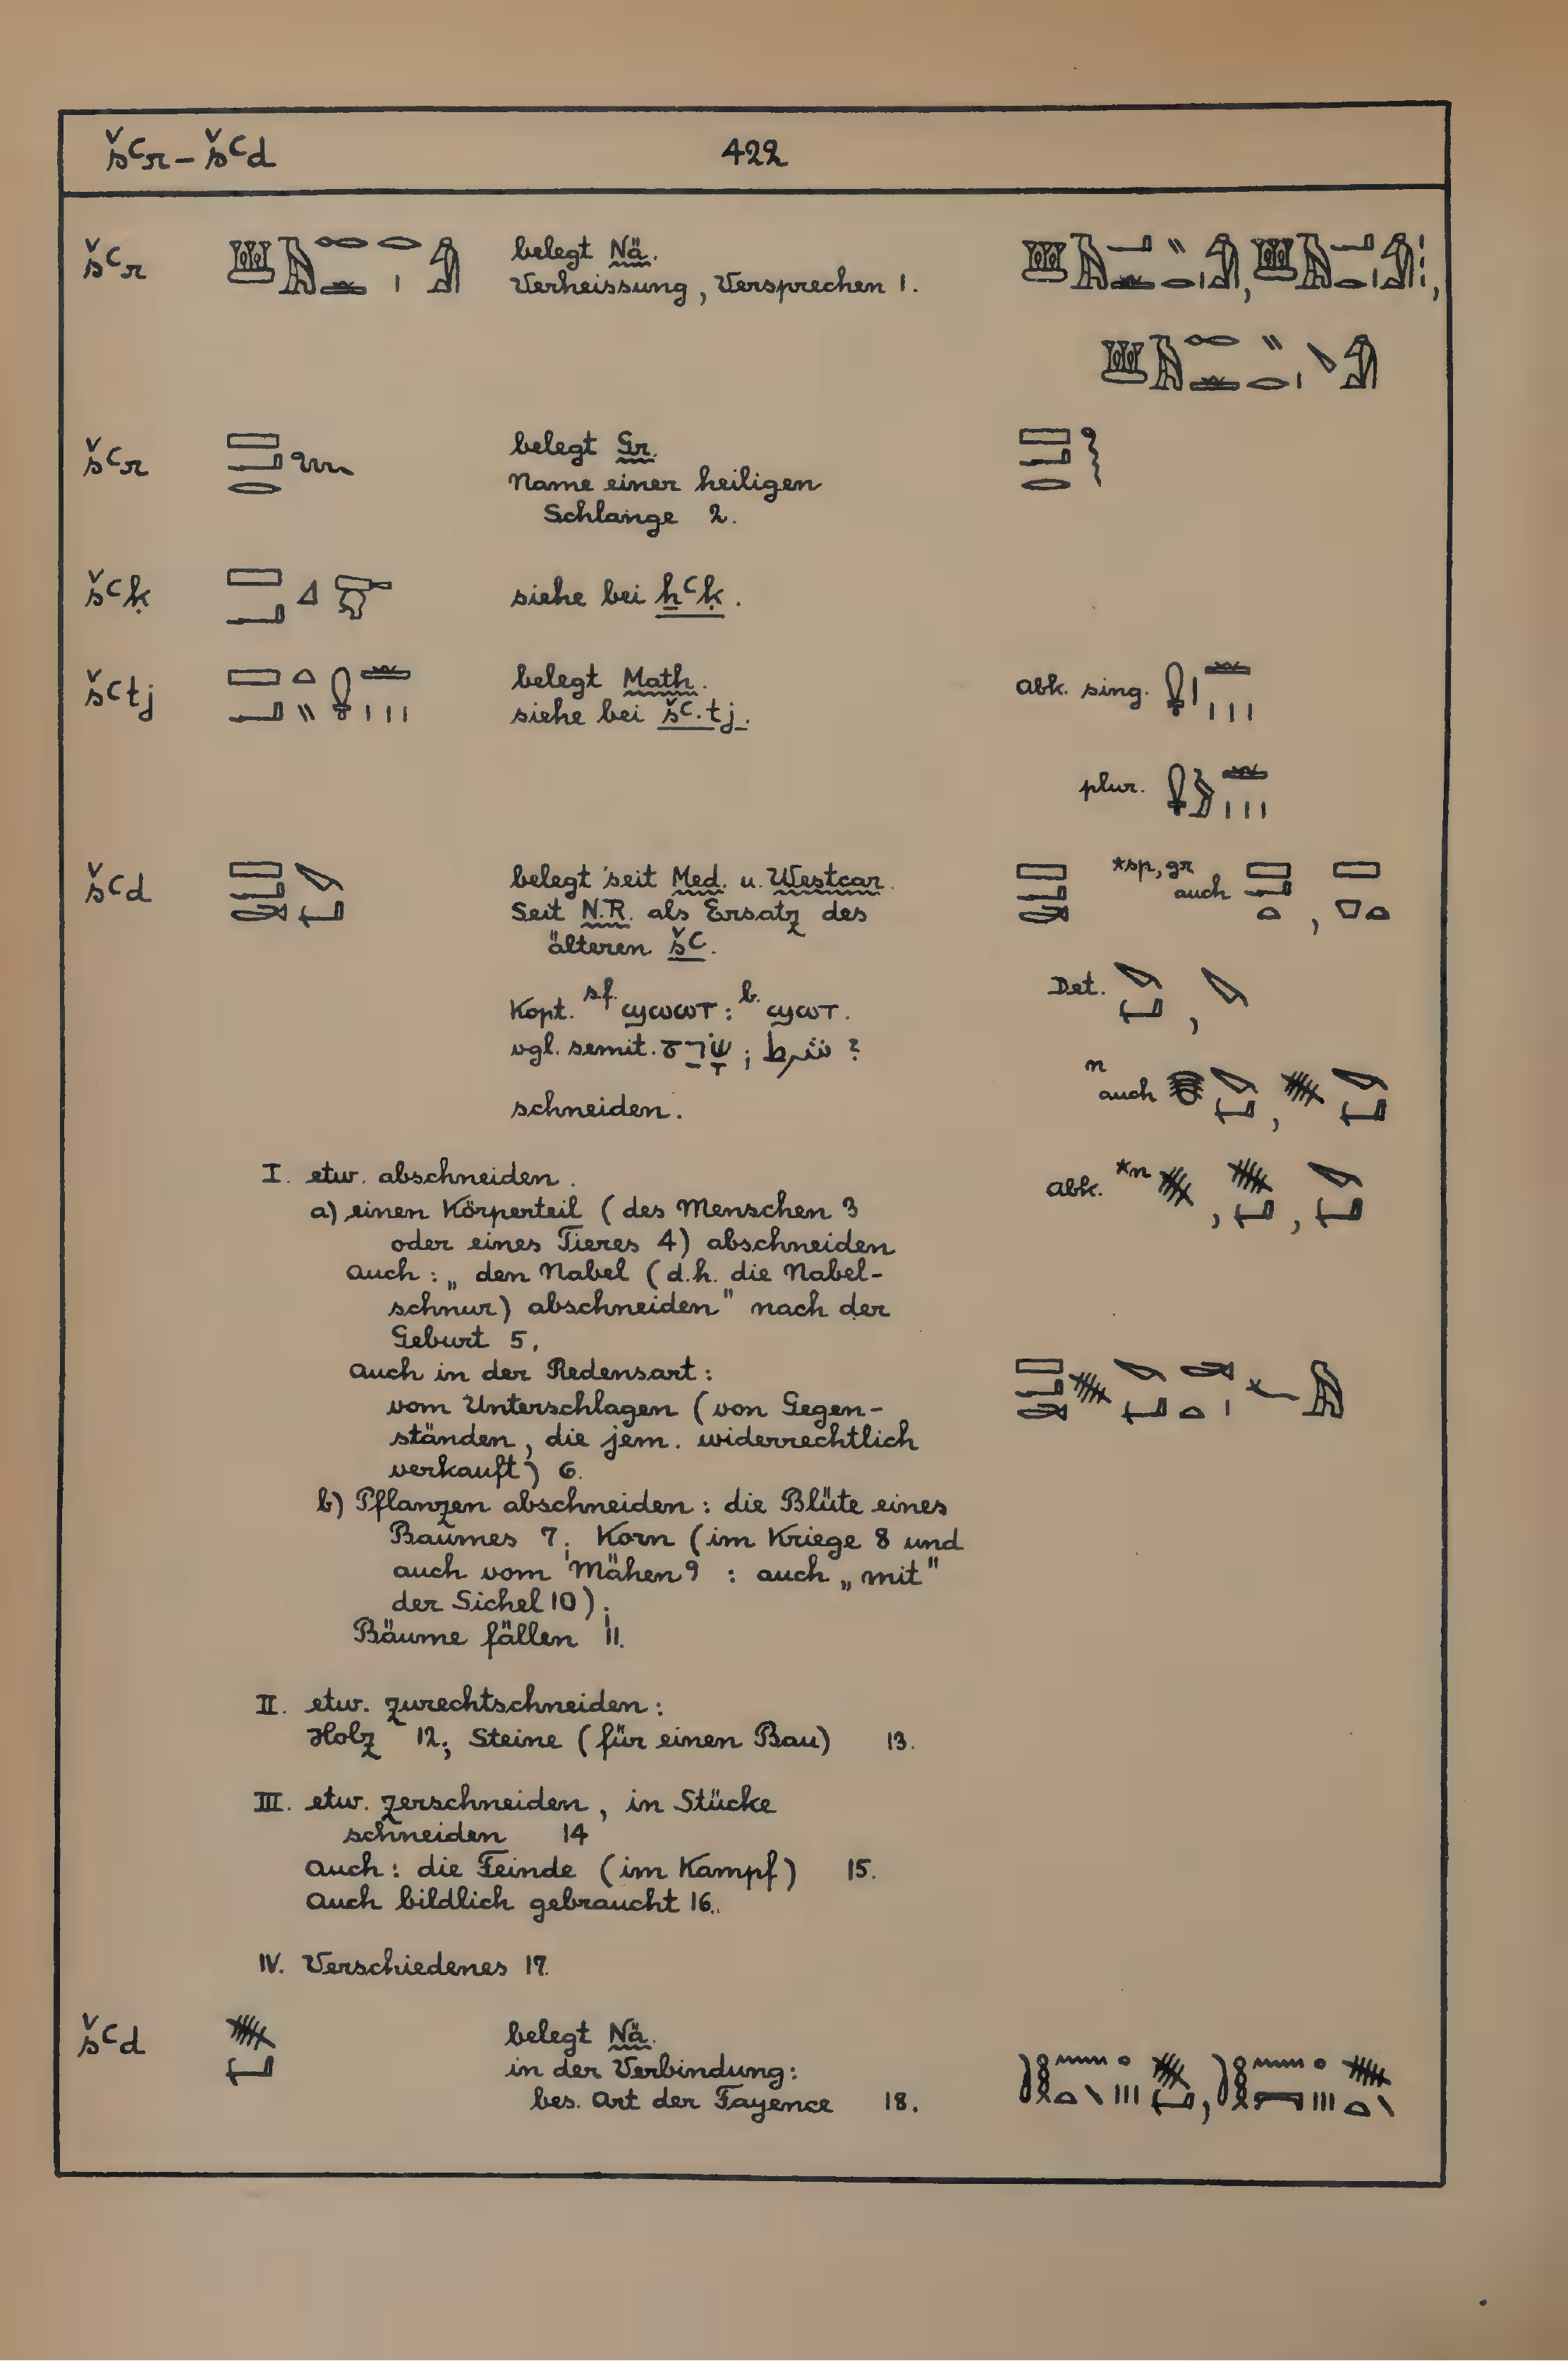 šꜥr – šꜥd 422
šꜥr belegt Nä.
Verheissung, Versprechen 1.
šꜥr belegt Gr.
Name einer heiligen
Schlange 2.
šꜥḳ siehe bei ẖꜥḳ.
šꜥtj belegt Math. Abk. sing.
siehe bei šꜥ.tj.
plur.
šꜥd belegt seit Med. u. Westcar. *sp, gr
auch
Seit N.R. als Ersatz des
älteren šꜥ.
Det.
Kopt. sf. ϣⲱⲱⲧ : b. ϣⲱⲧ.
vgl. semit. שָׂרַט ; شرط ?
n
auch
schneiden.
I. etw. abschneiden. Abk. *n
a) einen Körperteil (des Menschen 3
oder eines Tieres 4) abschneiden
auch: „den Nabel (d.h. die Nabel-
schnur) abschneiden" nach der
Geburt 5,
auch in der Redensart:
vom Unterschlagen (von Gegen-
ständen, die jem. widerrechtlich
verkauft) 6.
b) Pflanzen abschneiden: die Blüte eines
Baumes 7; Korn (im Kriege 8 und
auch vom Mähen 9 : auch „mit"
der Sichel 10);
Bäume fällen 11.
II. etw. zurechtschneiden:
Holz 12; Steine (für einen Bau) 13.
III. etw. zerschneiden, in Stücke
schneiden 14
auch: die Feinde (im Kampf) 15.
auch bildlich gebraucht 16.
IV. Verschiedenes 17.
šꜥd belegt Nä.
in der Verbindung:
bes. Art der Fayence 18.